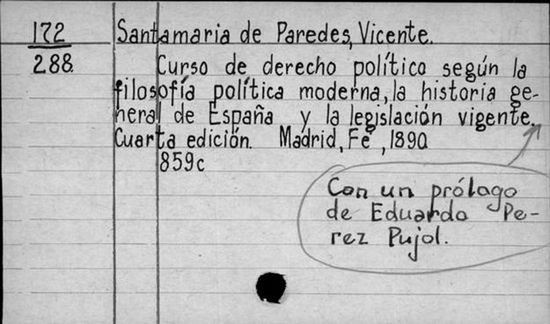 172
288
Santamaria de Paredes, Vicente.
Curso de derecho político según la
filosofía política moderna, la historia ge-
neral de España y la legislación vigente.
Cuarta edición. Madrid, Fe, 1890
859c
Con un prólogo
de Eduardo Pe-
rez Pujol.